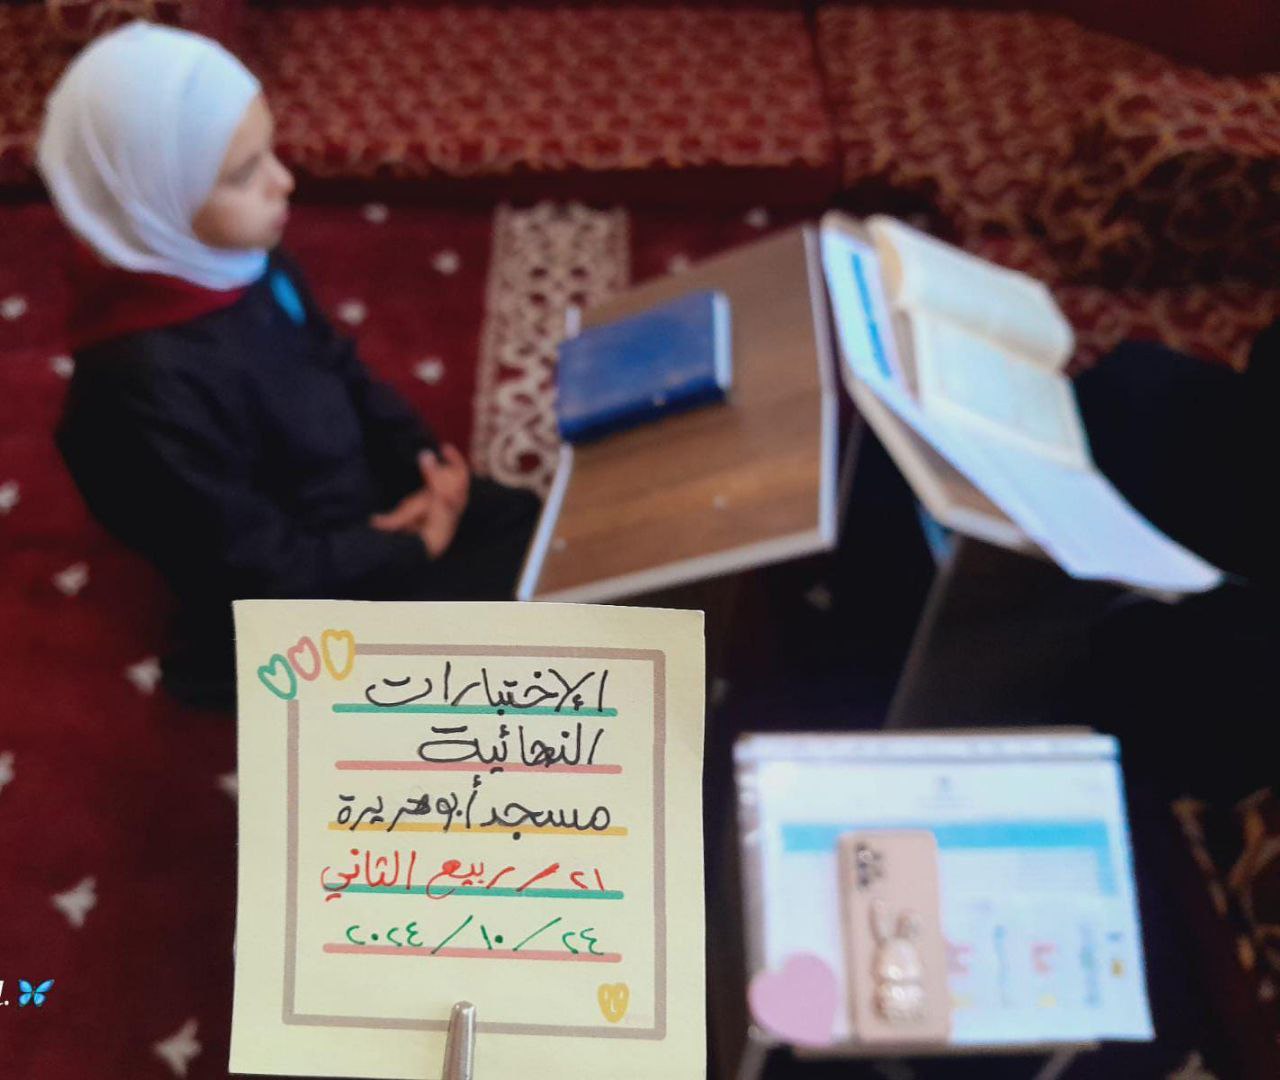 الإختبارات
النهائية
مسجد أبو هريرة
٢١ / ربيع الثاني
٢٤ / ١٠ / ٢٠٢٤